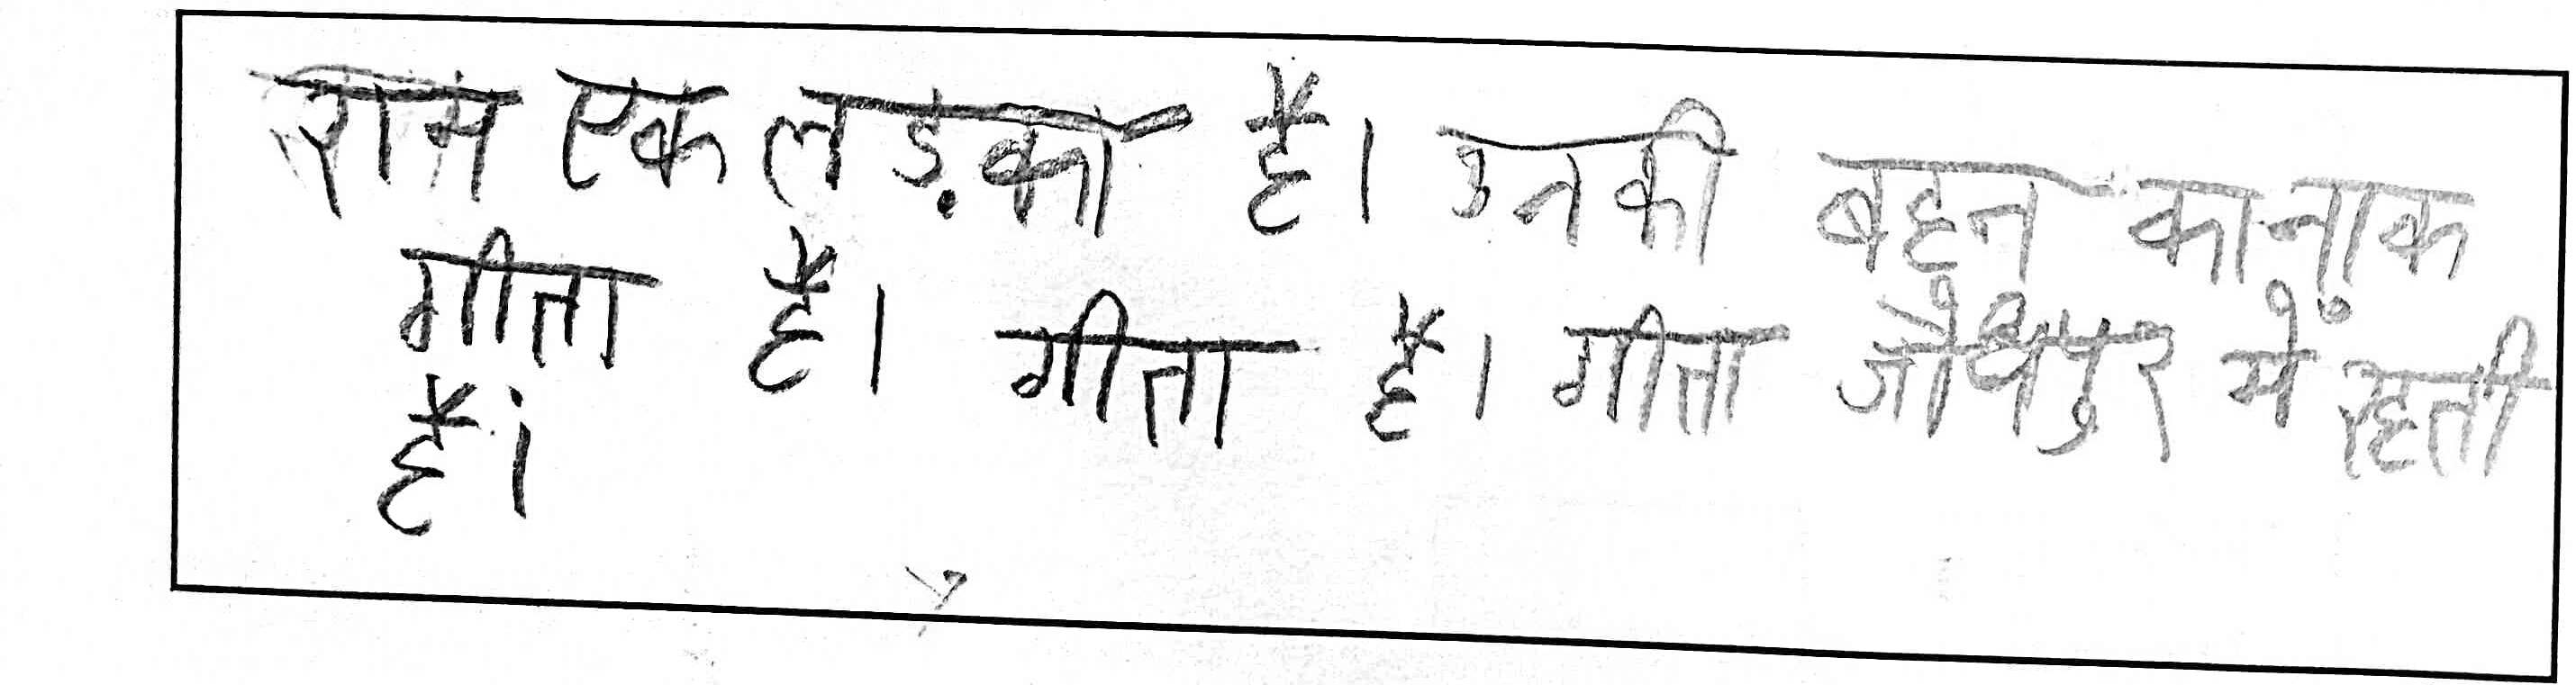 राम एक लड़का है। उनकी बहन का नाक
गीता है। गीता है। गीता जौधपुर में रहती
है।